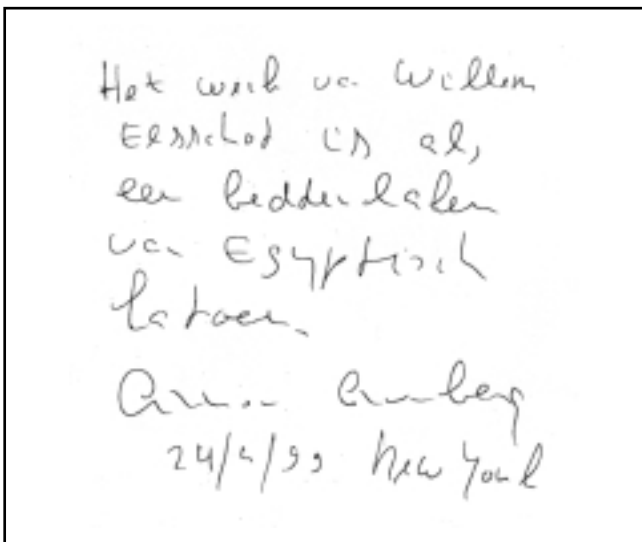 Het werk van Willem
Elsschot is als
een beddenlaken
van Egyptisch
katoen.
Arnon Grunberg
24/4/99 New York